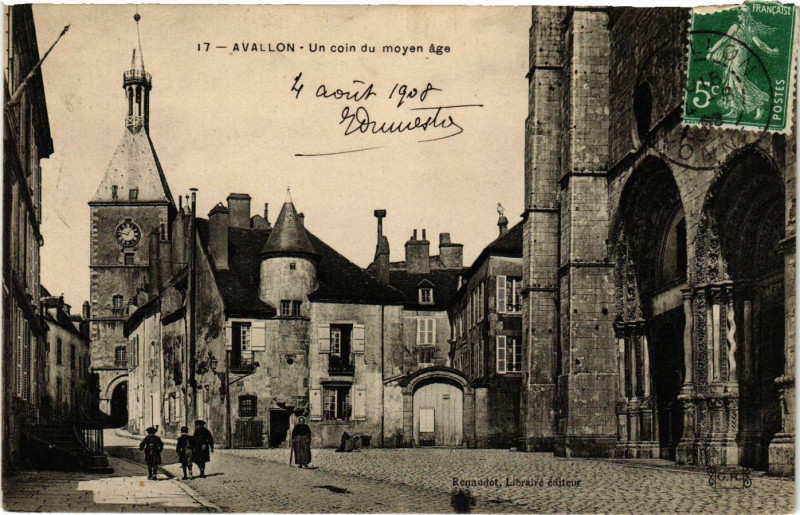 17 — AVALLON - Un coin du moyen âge
4 août 1908
5c
FRANÇAISE
POSTES
Renaudot, Libraire éditeur